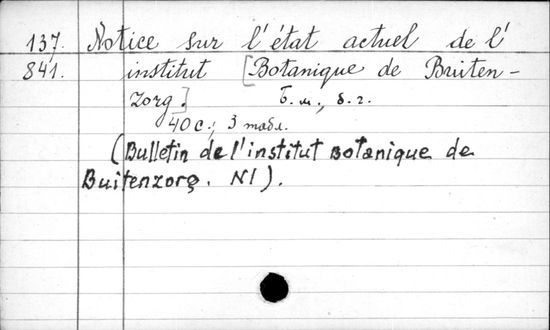 137. Notice sur l'état actuel de l'
841. institut [Botanique de Bruiten-
zorg.] Б. м., б. г.
40 с., 3 табл.
(Bulletin de l'institut Botanique de
Buitenzorg. N1).